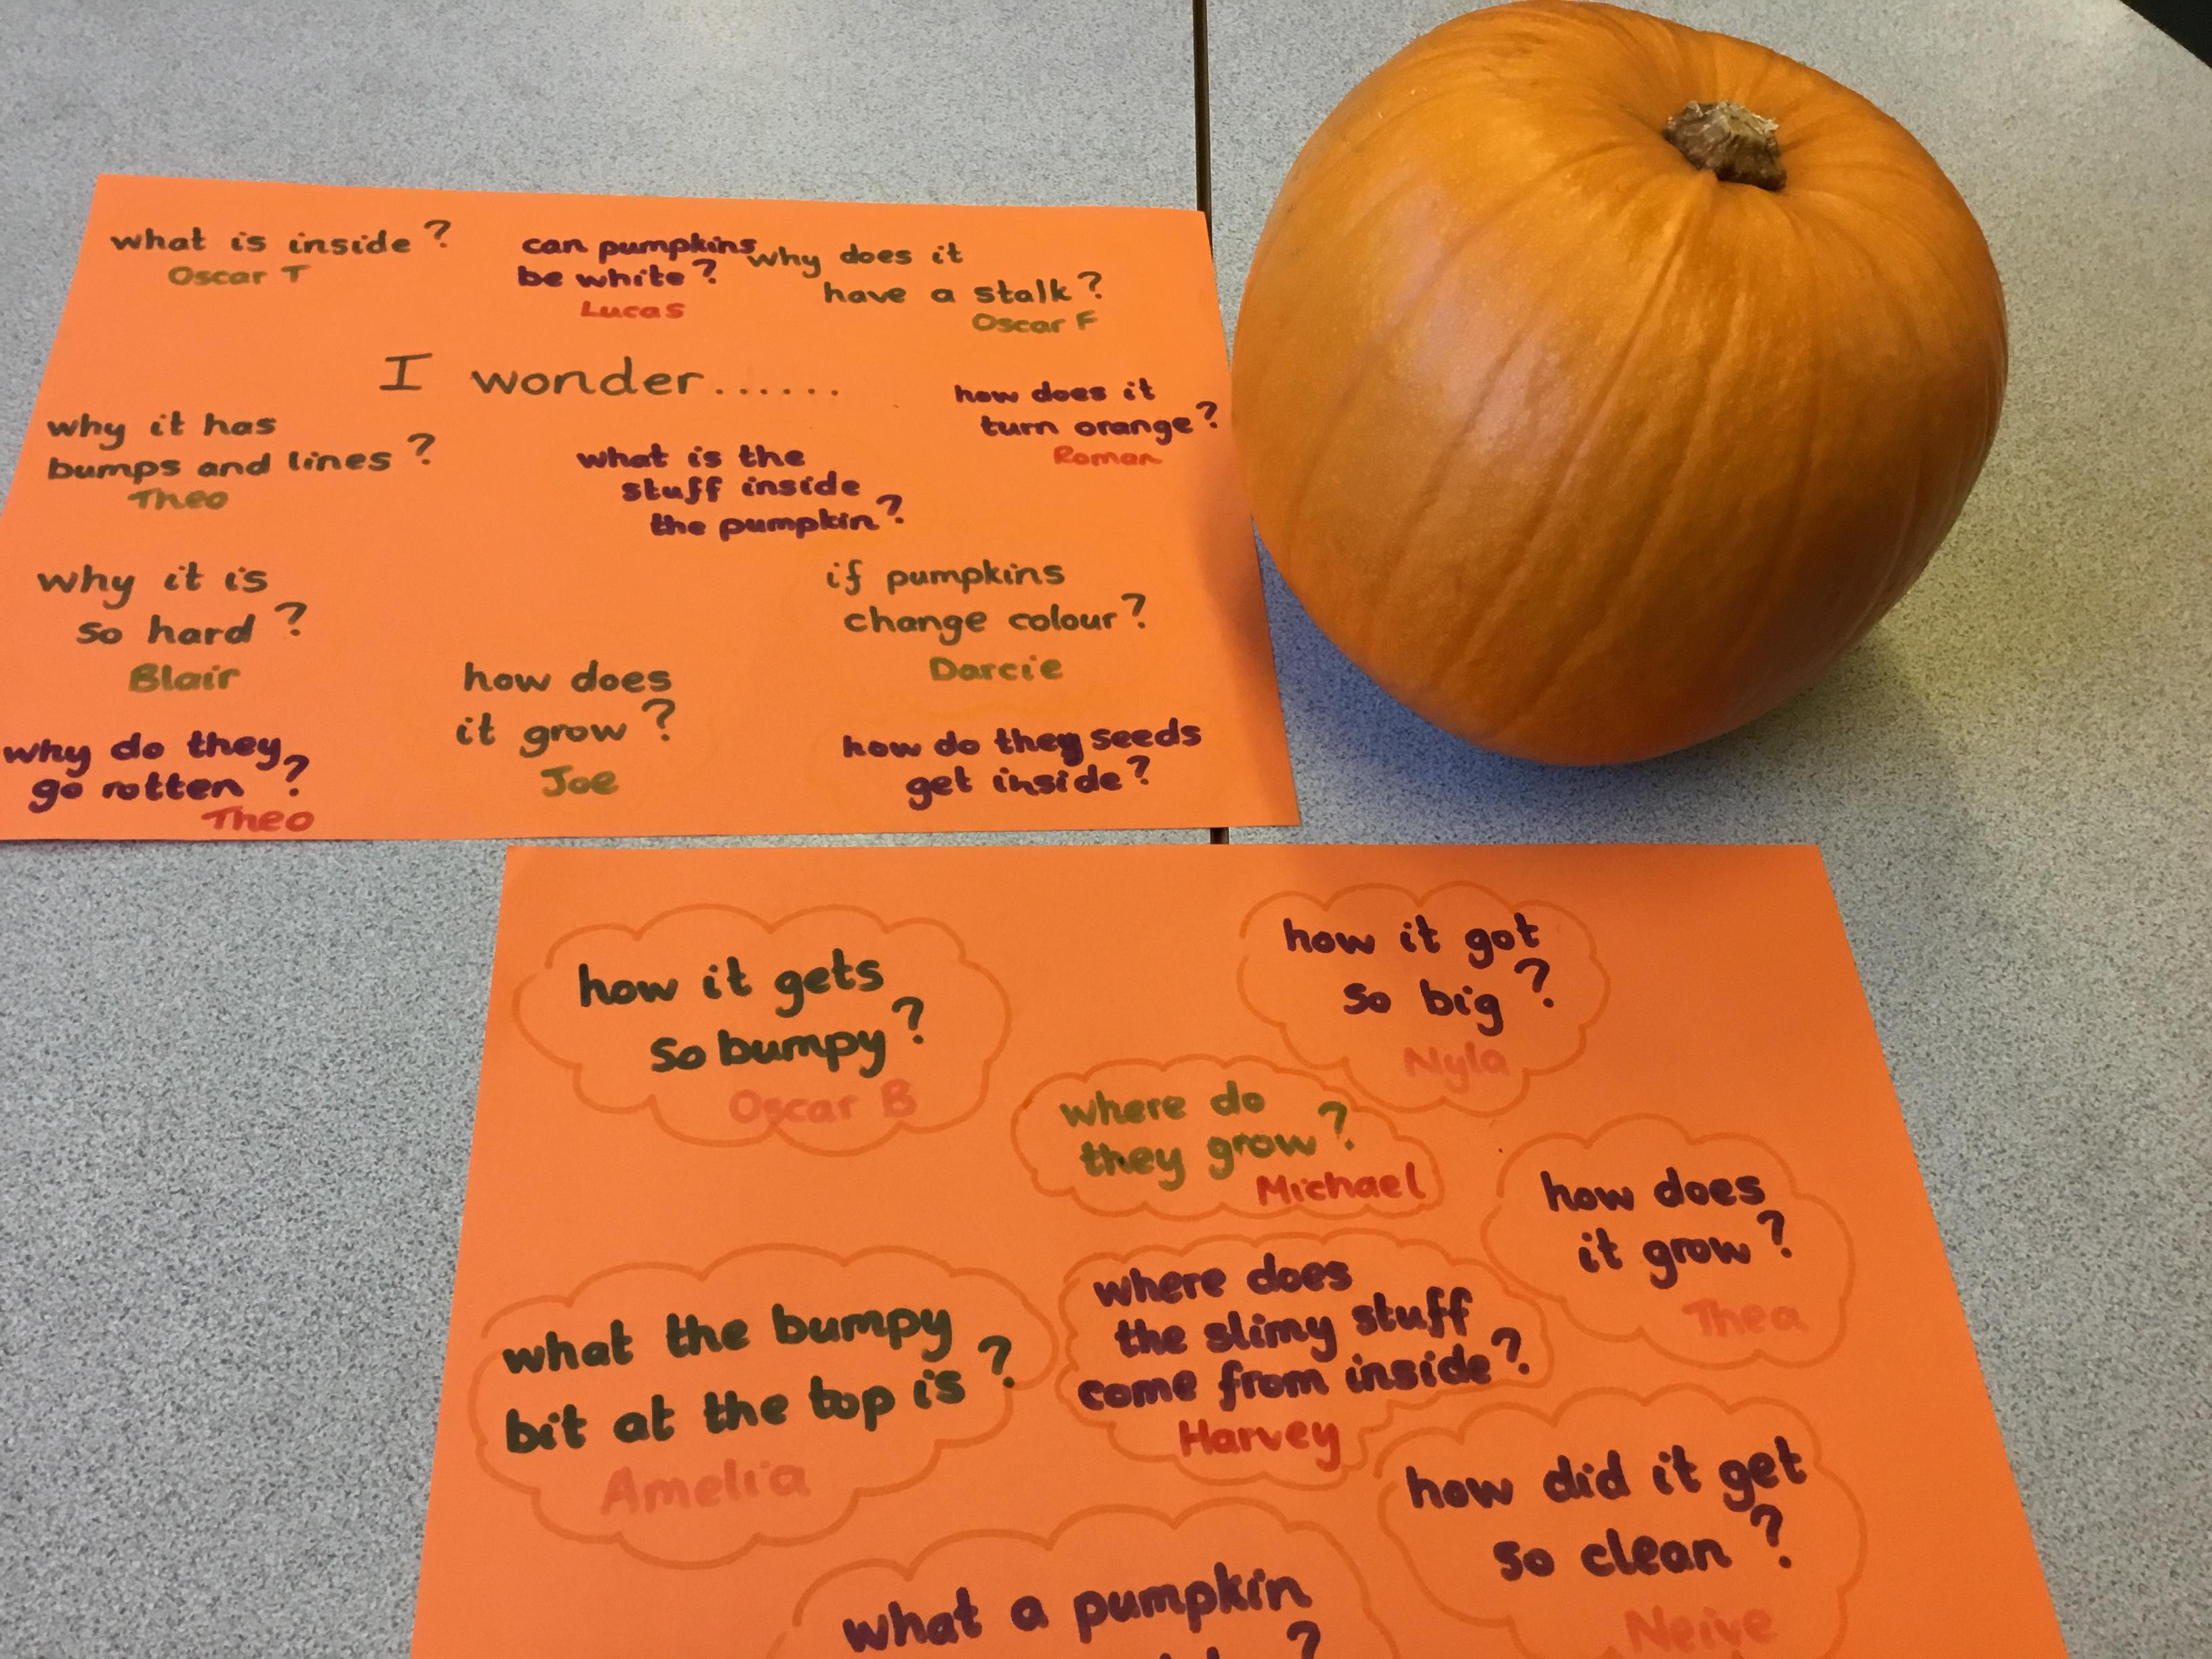 what is inside?
Oscar T
can pumpkins
be white?
Lucas
why does it
have a stalk?
Oscar F
I wonder......
how does it
turn orange?
Roman
why it has
bumps and lines?
Theo
what is the
stuff inside
the pumpkin?
why it is
so hard?
Blair
if pumpkins
change colour?
Darcie
how does
it grow?
Joe
why do they
go rotten?
Theo
how do they seeds
get inside?
how it gets
so bumpy?
Oscar B
how it got
so big?
Nyla
where do
they grow?
Michael
how does
it grow?
Thea
what the bumpy
bit at the top is?
Amelia
where does
the slimy stuff
come from inside?
Harvey
how did it get
so clean?
Neive
what a pumpkin
?